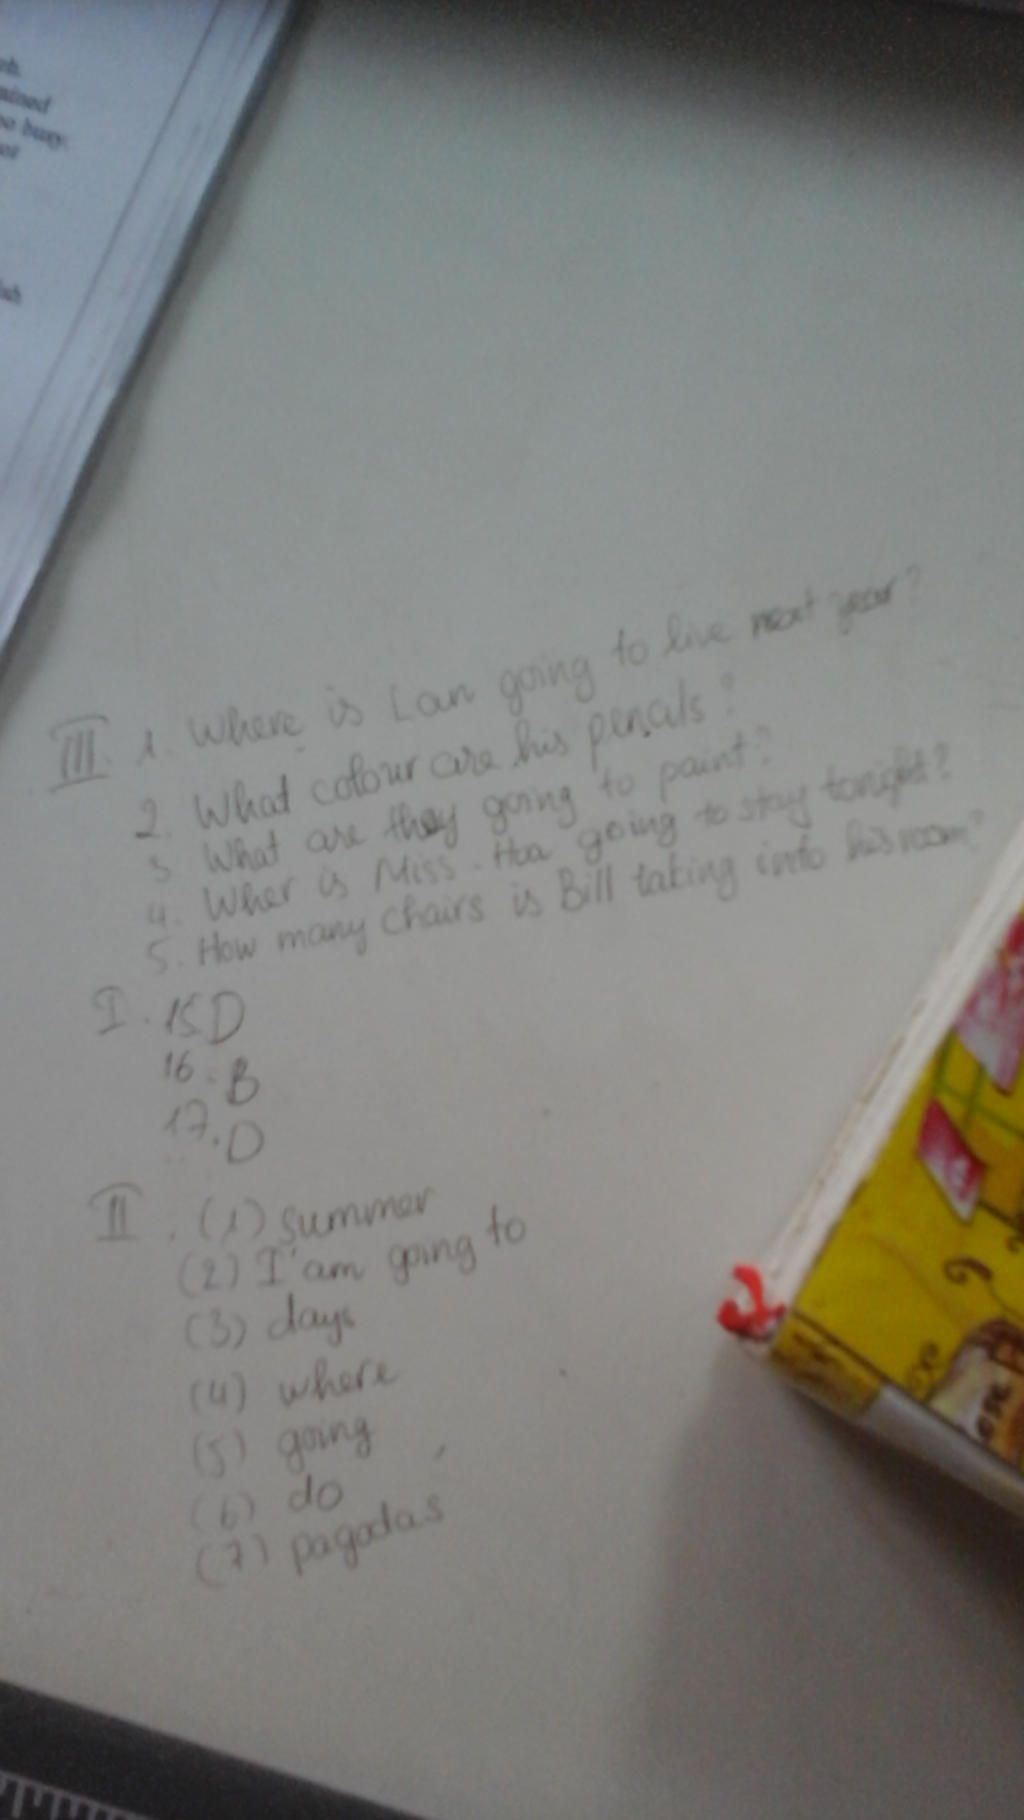 ained
oo busy.
III. 1. Where is Lan going to live next year?
2. What colour are his pencils?
3. What are they going to paint?
4. Wher is Miss. Hoa going to stay tonight?
5. How many chairs is Bill taking into his room?
I. 15.D
16. B
17. D
II. (1) summer
(2) I'am going to
(3) days
(4) where
(5) going
(6) do
(7) pagodas